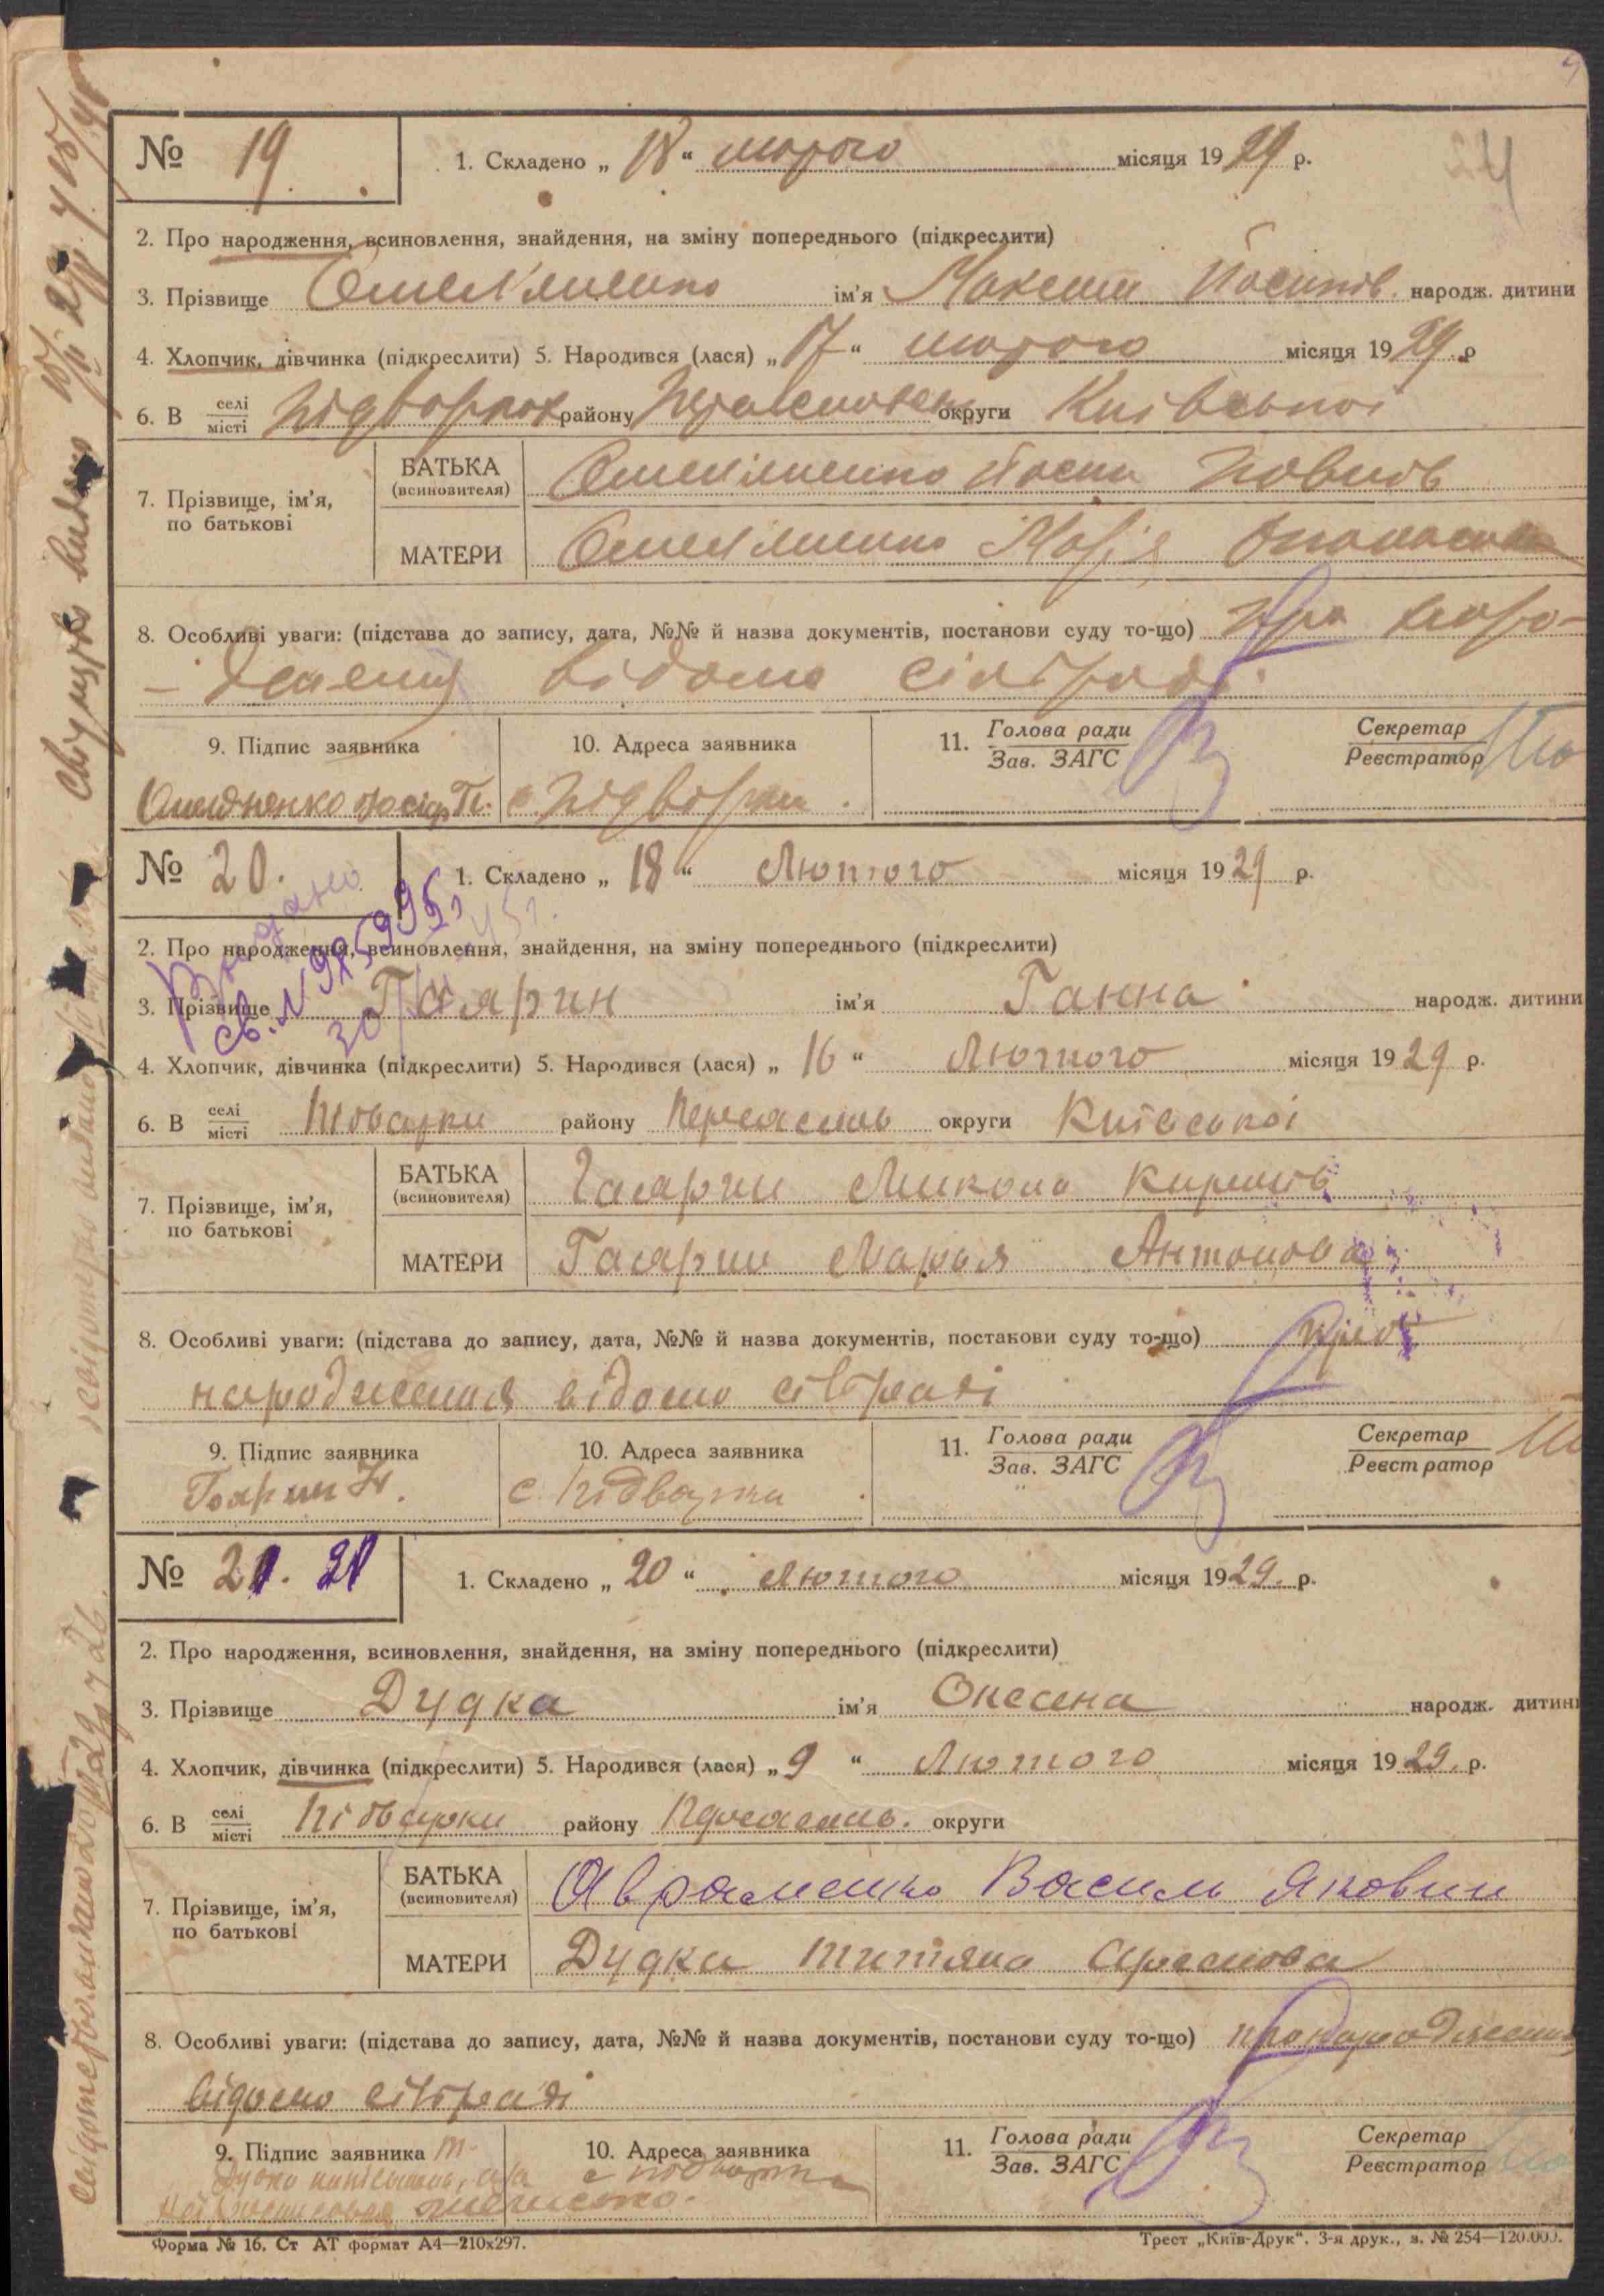 № 19. 1. Складено „18“ лютого місяця 1929 р.
2. Про народження, всиновлення, знайдення, на зміну попереднього (підкреслити)
3. Прізвище Омеляненко ім'я Максим Йосипів. народж. дитини
4. Хлопчик, дівчинка (підкреслити) 5. Народився (лася) „17“ лютого місяця 1929 р
6. В селі/місті Підворках району округи Київської
7. Прізвище, ім'я, по батькові
БАТЬКА (всиновителя) Омеляненко Йосип Павлов
МАТЕРИ Омеляненко Марія
8. Особливі уваги: (підстава до запису, дата, №№ й назва документів, постанови суду то-що) Про наро-
-дження відомо сільраді.
9. Підпис заявника 10. Адреса заявника 11. Голова ради/Зав. ЗАГС Секретар/Реєстратор
Омеляненко Йосип П. с Підворки.
№ 20. 1. Складено „18“ Лютого місяця 1929 р.
Видано
св. № 30/
2. Про народження, всиновлення, знайдення, на зміну попереднього (підкреслити)
3. Прізвище Гаярин ім'я Ганна народж. дитини
4. Хлопчик, дівчинка (підкреслити) 5. Народився (лася) „16“ Лютого місяця 1929 р.
6. В селі/місті району Переяслав округи Київської
7. Прізвище, ім'я, по батькові
БАТЬКА (всиновителя) Гаярин Микола Кирилів
МАТЕРИ Гаярин Марья Антонова
8. Особливі уваги: (підстава до запису, дата, №№ й назва документів, постанови суду то-що) Про
народження відомо сільраді
9. Підпис заявника 10. Адреса заявника 11. Голова ради/Зав. ЗАГС Секретар/Реєстратор
Гаярин Н. с Підварки
№ 21. 21 1. Складено „20“ Лютого місяця 1929. р.
2. Про народження, всиновлення, знайдення, на зміну попереднього (підкреслити)
3. Прізвище Дудка ім'я Оксена народж. дитини
4. Хлопчик, дівчинка (підкреслити) 5. Народився (лася) „9“ Лютого місяця 1929. р.
6. В селі/місті Підварки району Переяслав. округи
7. Прізвище, ім'я, по батькові
БАТЬКА (всиновителя) Авраменко Василь Якович
МАТЕРИ Дудка Титяна
8. Особливі уваги: (підстава до запису, дата, №№ й назва документів, постанови суду то-що) про народження
відомо сільраді
9. Підпис заявника 10. Адреса заявника 11. Голова ради/Зав. ЗАГС Секретар/Реєстратор
Дудка с Підварки
Форма № 16. Ст АТ формат А4—210x297. Трест „Київ-Друк“. 3-я друк., з. № 254—120.000.